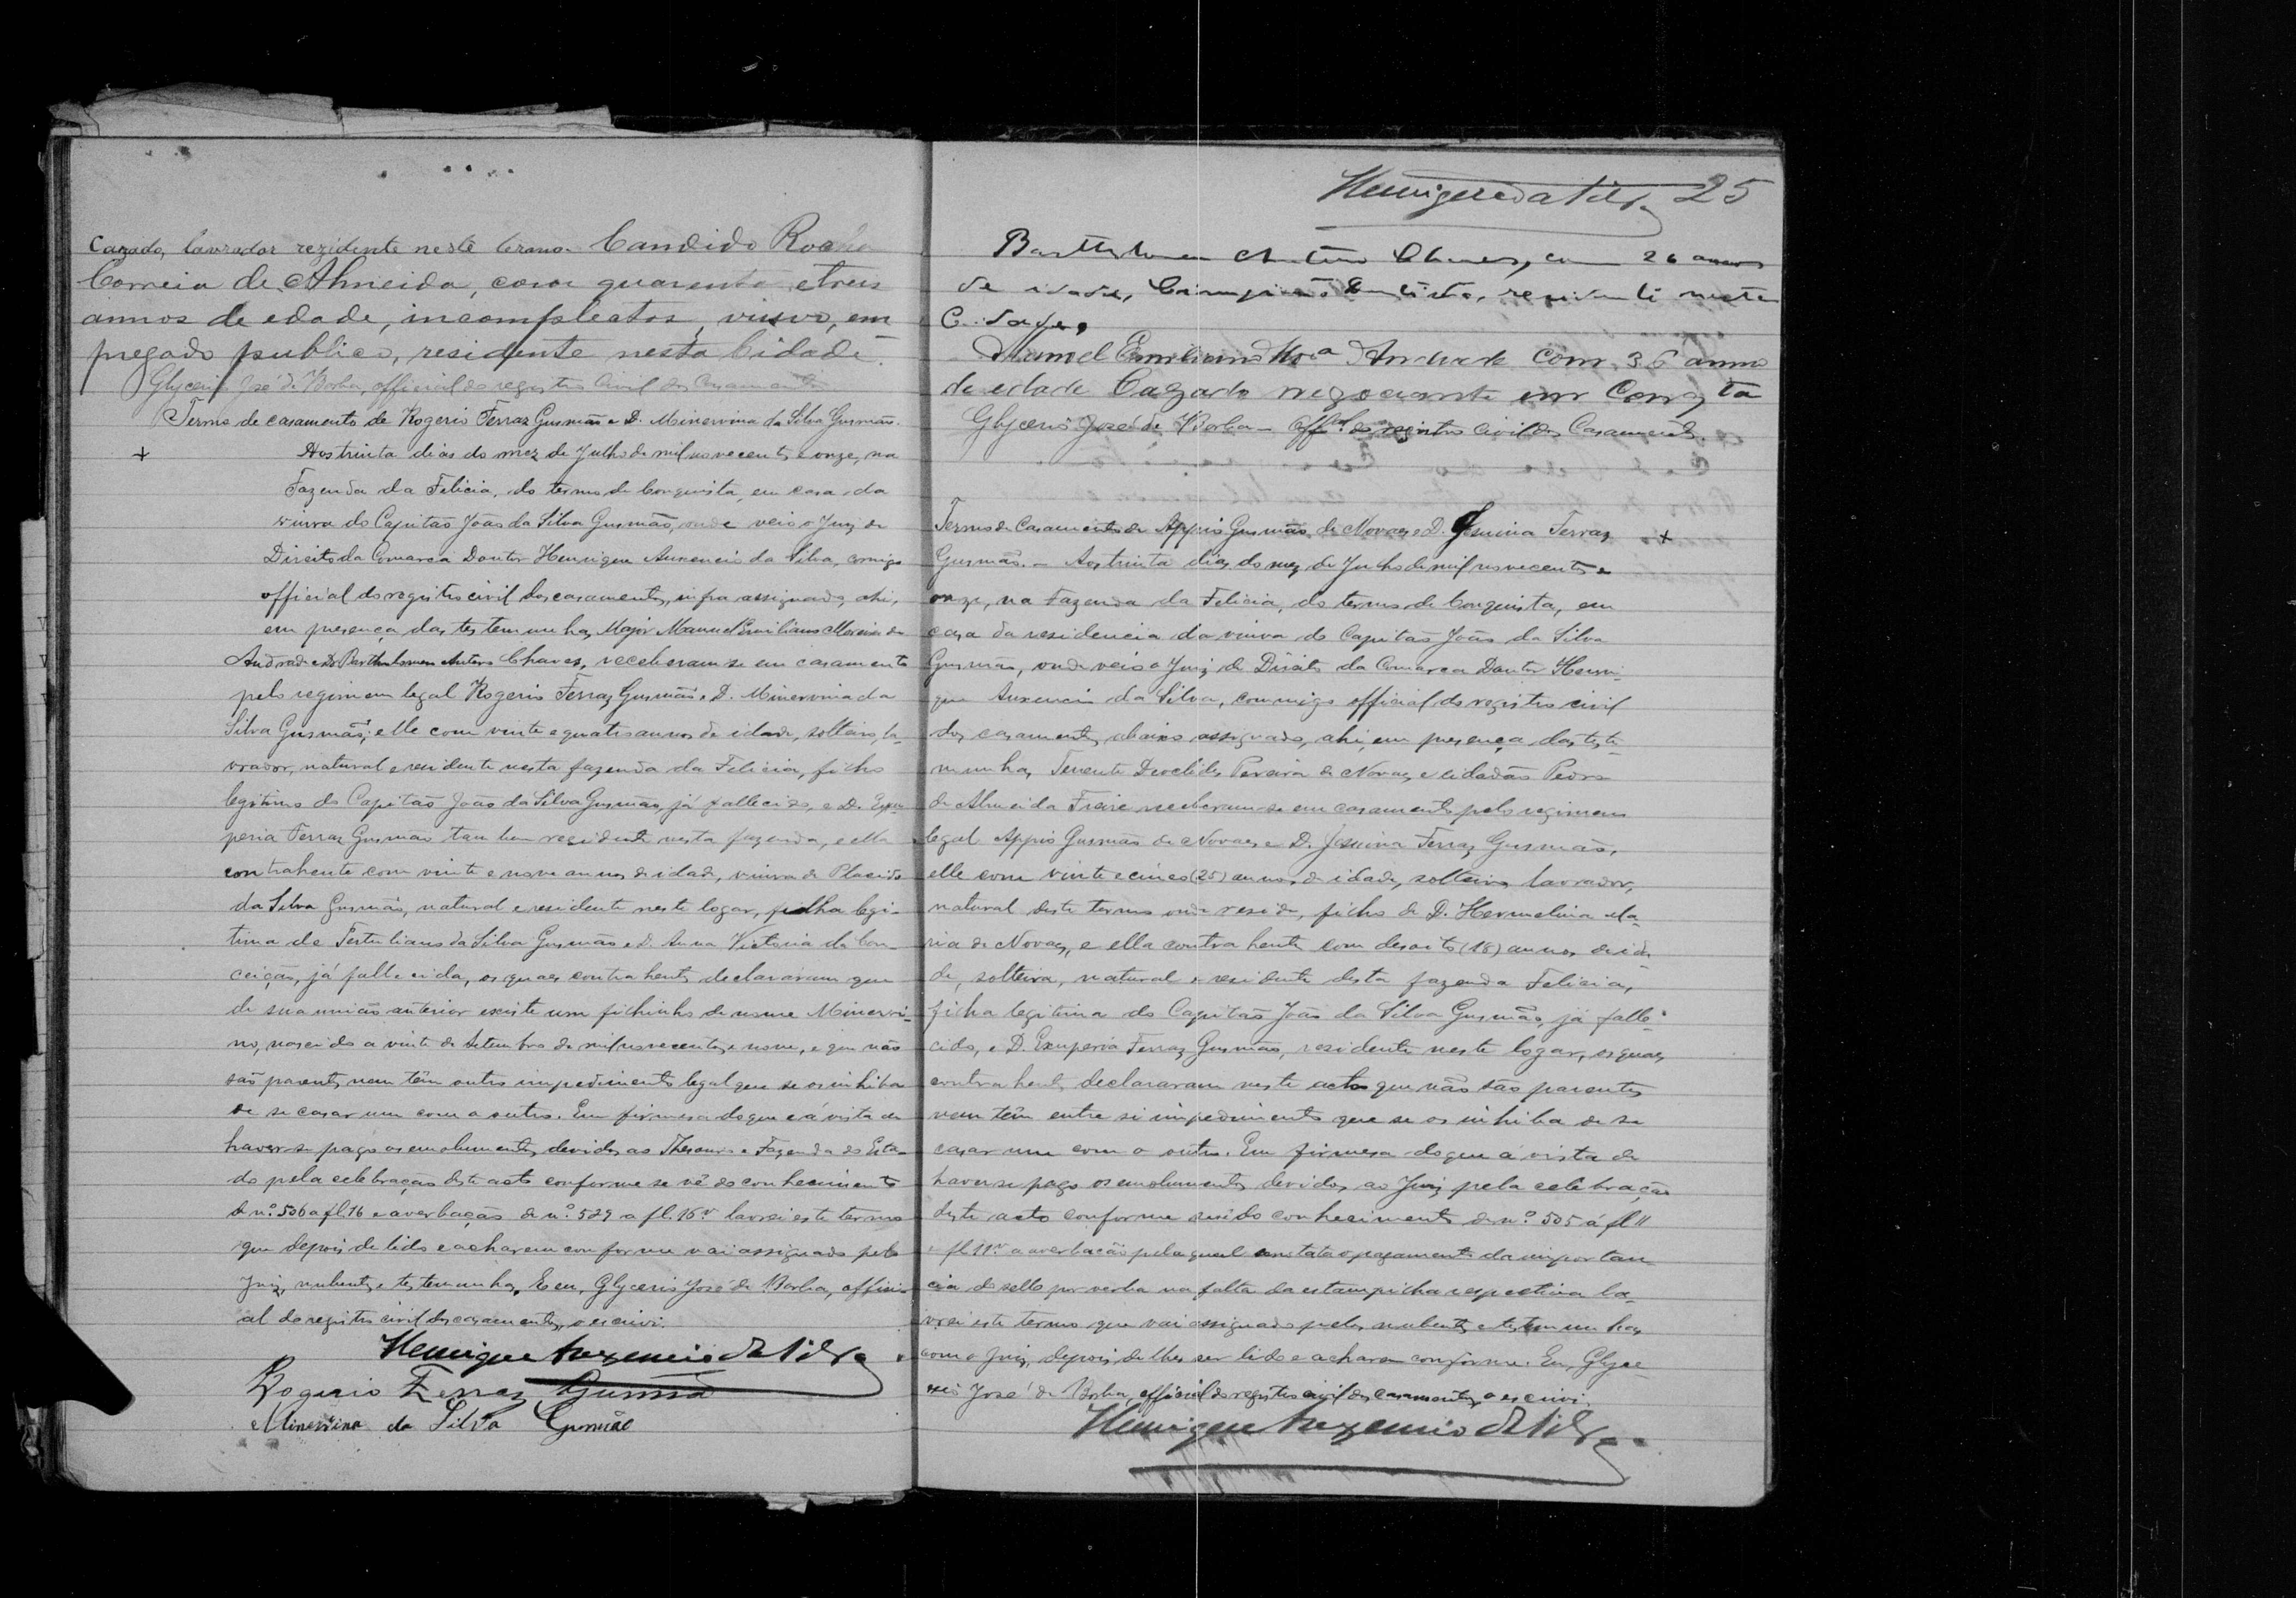 Cazado, lavrador rezidente neste termo. Candido Rocha
Correia de Almeida, com quarenta e treis
annos de edade, incompleatos, viuvo, em
pregado publico, residente nesta Cidade.
Glycerio José de Borba, official do registro Civil dos Casamentos
Termo de casamento de Rogerio Ferraz Gusmão e D. Minervina da Silva Gusmão.
+ Aos trinta dias do mez de Julho de mil novecentos e onze, na
Fazenda da Felicia, do termo de Conquista, em casa da
viuva do Capitão João da Silva Gusmão, onde veio o Juiz de
Direito da Comarca Doutor Henrique Auxencio da Silva, comigo
official do registro civil dos casamentos, infra assignado, ahi,
em presença das testemunhas, Major Manuel Emiliano Moreira de
Andrade e Dr Bartholomeu Antero Chaves, receberam-se em casamento
pelo regimem legal Rogerio Ferraz Gusmão e D. Minervina da
Silva Gusmão; elle com vinte e quatro annos de idade, solteiro, la-
vrador, natural e residente nesta fazenda da Felicia, filho
legitimo do Capitão João da Silva Gusmão, já fallecido, e D. Exu-
peria Ferraz Gusmão tambem residente nesta fazenda, e ella
contrahente com vinte e nove annos de idade, viuva de Placido
da Silva Gusmão, natural e residente neste logar, filha legi-
tima de Tertuliano da Silva Gusmão e d. Anna Victoria da Con-
ceição, já fallecida, os quaes contrahentes declararam que
de sua união anterior existe um filhinho de nome Minervi-
no, nascido a vinte de Setembro de mil novecentos e nove, e que não
são parentes nem têm outro impedimento legal que se os inhiba
de se casar um com o outro. Em firmesa do que e á vista de
haver-se pago os emolumentos devidos ao Thesouro e Fazenda do Esta-
do pela celebração deste acto conforme se vê do conhecimento
de nº 506 a fl. 16 e averbação de nº 529 a fl. 16v lavrei este termo
que depois de lido e acharem conforme vai assignado pelo
Juiz, nubentes e testemunhas. E eu, Glycerio José de Borba, offici-
al do registro civil dos casamentos, o escrivi.
Henrique Auxencio da Silva
Rogerio Ferraz Gusmão
Minervina da Silva Gusmão
Henrique da Silva 25
Bartholomeu Antero Chaves, com 26 annos
de idade, Cirurgião Dentista, residente nesta
Cidade,
Manuel Emiliano Mra d'Andrade com 36 annos
de edade Cazado negociante em Conqta
Glycerio José de Borba - Offal do registro civil dos Casamentos.
Termo de Casamento de Appio Gusmão de Novaes e D. Jesuina Ferraz +
Gusmão. - Aos trinta dias do mez de Julho de mil novecentos e
onze, na Fazenda da Felicia, do termo de Conquista, em
casa da residencia da viuva do Capitão João da Silva
Gusmão, onde veio o Juiz de Direito da Comarca Doutor Henri-
que Auxencio da Silva, commigo official do registro civil
dos casamentos, abaixo assignado, ahi, em presença das teste-
munhas, Tenente Deoclides Pereira de Novaes e cidadão Pedro
de Almeida Freire receberam-se em casamento pelo regimem
legal Appio Gusmão de Novaes e D. Jesuina Ferraz Gusmão,
elle com vinte e cinco (25) annos de idade, solteiro, lavrador,
natural deste termo onde reside, filho de D. Hermelina Ma-
ria de Novaes, e ella contrahente com desoito (18) annos de ida-
de, solteira, natural e residente desta fazenda Felicia,
filha legitima do Capitão João da Silva Gusmão, já falle-
cido, e D. Exuperia Ferraz Gusmão, residente neste logar, os quaes
contrahentes declararam neste acto que não são parentes
nem têm entre si impedimento que se os inhiba de se
casar um com o outro. Em firmesa do que á vista de
haver-se pago os emolumentos devidos ao Juiz pela celebração
deste acto conforme conhecimento de nº 505 á fl 11
e fl 11v a averbação pela qual constata o pagamento da importan-
cia do sello por verba na falta da estampilha respectiva la-
vrei este termo que vai assignado pelos nubentes e testemunhas
com o Juiz, depois de lhes ser lido e acharem conforme. Eu, Glyce-
rio José de Borba, official do registro civil dos casamentos, o escrivi.
Henrique Auxencio da Silva